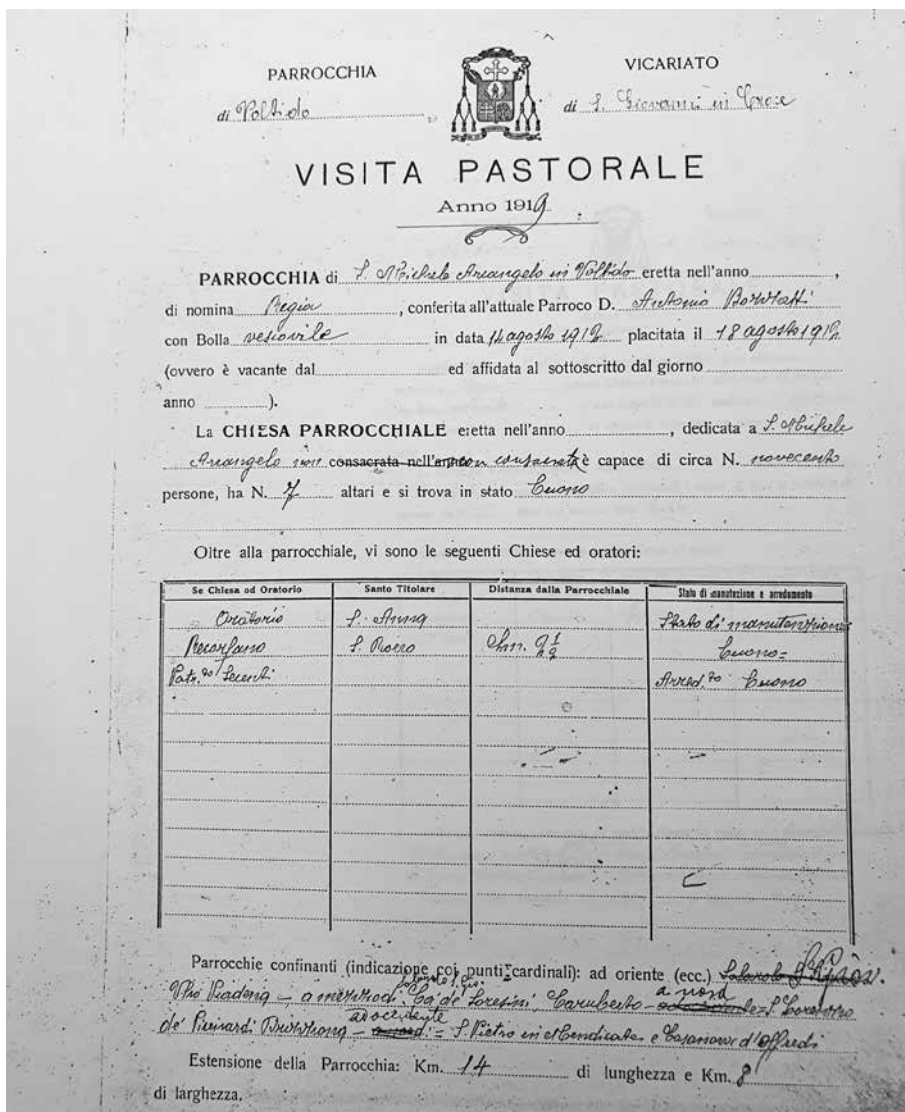 PARROCCHIA
di Voltido
VICARIATO
di S. Giovanni in Croce
VISITA PASTORALE
Anno 1919
PARROCCHIA di S. Michele Arcangelo in Voltido eretta nell'anno ,
di nomina Regia , conferita all'attuale Parroco D. Antonio
con Bolla vescovile in data 14 agosto 1912 placitata il 18 agosto 1912
(ovvero è vacante dal ed affidata al sottoscritto dal giorno
anno ).
La CHIESA PARROCCHIALE eretta nell'anno , dedicata a S. Michele
Arcangelo non consacrata nell'anno non consacrata è capace di circa N. novecento
persone, ha N. 7 altari e si trova in stato buono
Oltre alla parrocchiale, vi sono le seguenti Chiese ed oratori:
Se Chiesa od Oratorio Santo Titolare Distanza dalla Parrocchiale Stato di manutezione e arredamento
Oratorio S. Anna Stato di manutenzione
Recorfano S. Rocco Chm. 2 1/2 buono =
Patr.to Arred.to buono
Parrocchie confinanti (indicazione coi punti cardinali): ad oriente (ecc.)
a mezzodì: Cà de' Soresini, a nord S. Lorenzo
de' ad occidente = S. Pietro in Mendicate e Casanova d'Offredi
Estensione della Parrocchia: Km. 14 di lunghezza e Km. 8
di larghezza.